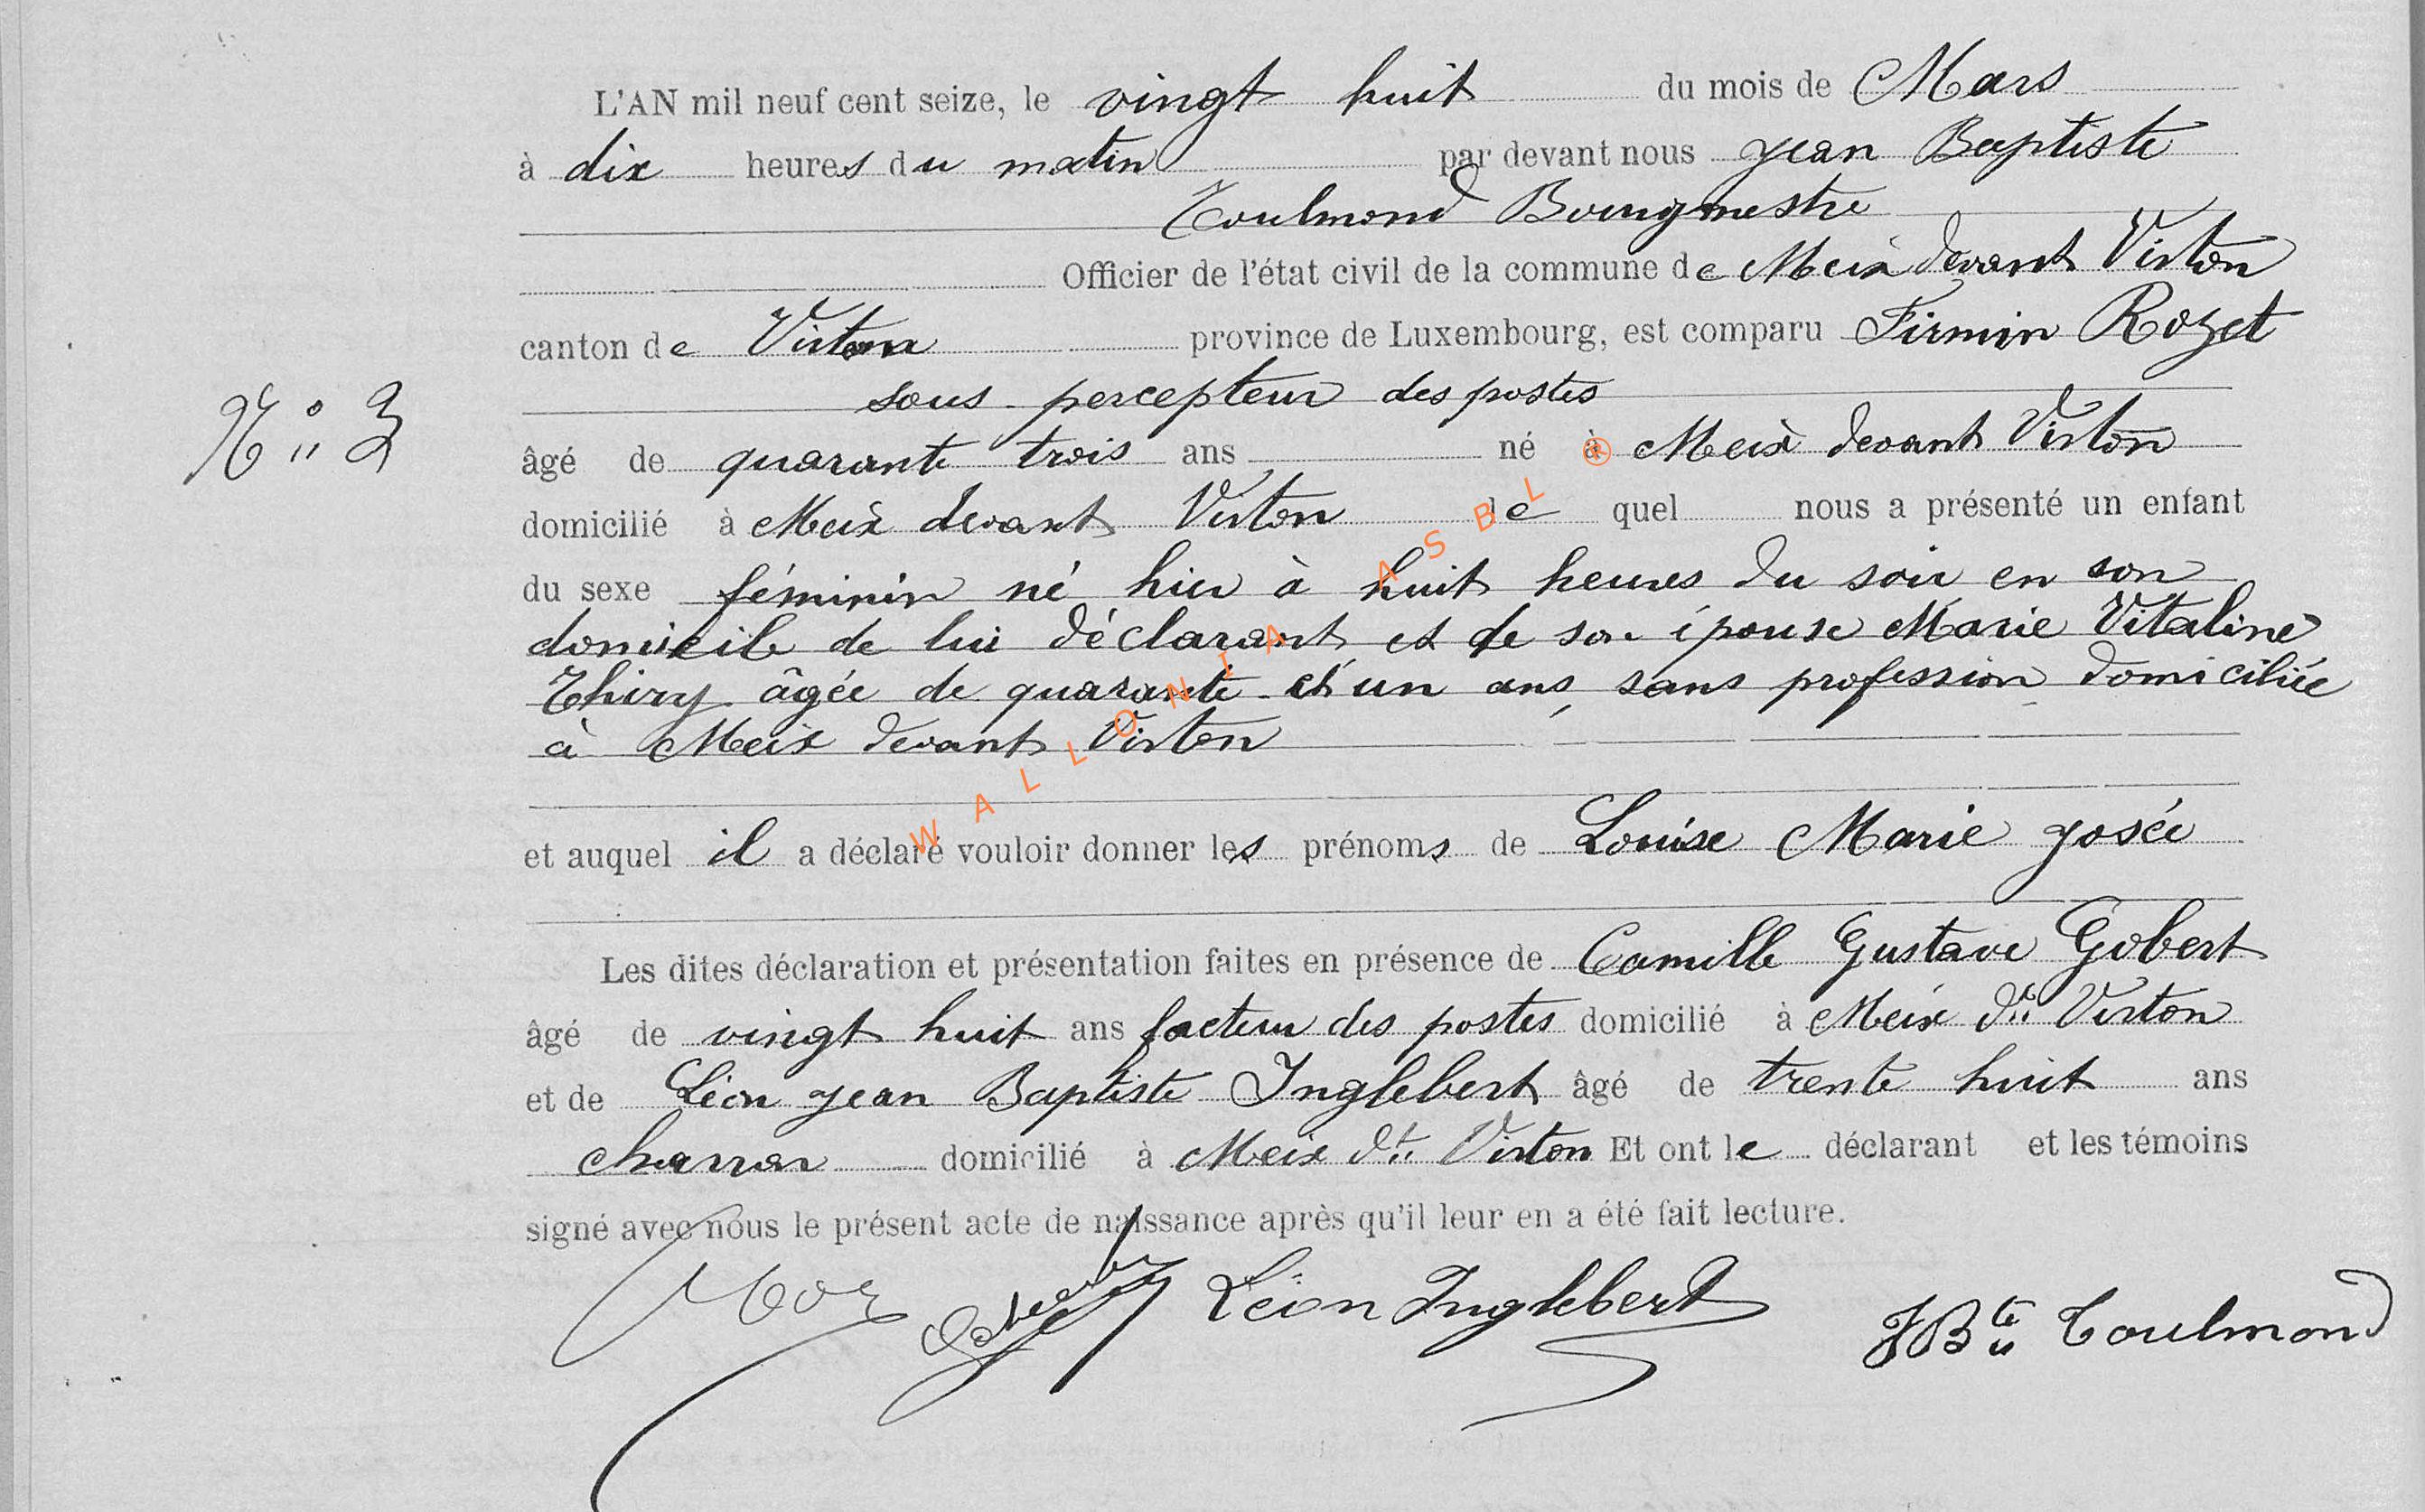 L'AN mil neuf cent seize, le vingt huit du mois de Mars
à dix heures du matin par devant nous Jean Baptiste
Toulmond Bourgmestre
Officier de l'état civil de la commune de Meix devant Virton
canton de Virton province de Luxembourg, est comparu Firmin Rozet
sous percepteur des postes
N° 3
âgé de quarante trois ans né à Meix devant Virton
domicilié à Meix devant Virton le quel nous a présenté un enfant
du sexe féminin né hier à huit heures du soir en son
domicile de lui déclarant et de son épouse Marie Vitaline
Thiry âgée de quarante et un ans, sans profession domiciliée
à Meix devant Virton
WALLONIA ASBL ®
et auquel il a déclaré vouloir donner les prénoms de Louise Marie Josée
Les dites déclaration et présentation faites en présence de Camille Gustave Gobert
âgé de vingt huit ans facteur des postes domicilié à Meix dt Virton
et de Léon Jean Baptiste Inglebert âgé de trente huit ans
charron domicilié à Meix dt Virton Et ont le déclarant et les témoins
signé avec nous le présent acte de naissance après qu'il leur en a été fait lecture.
Léon Inglebert
JBte Toulmond